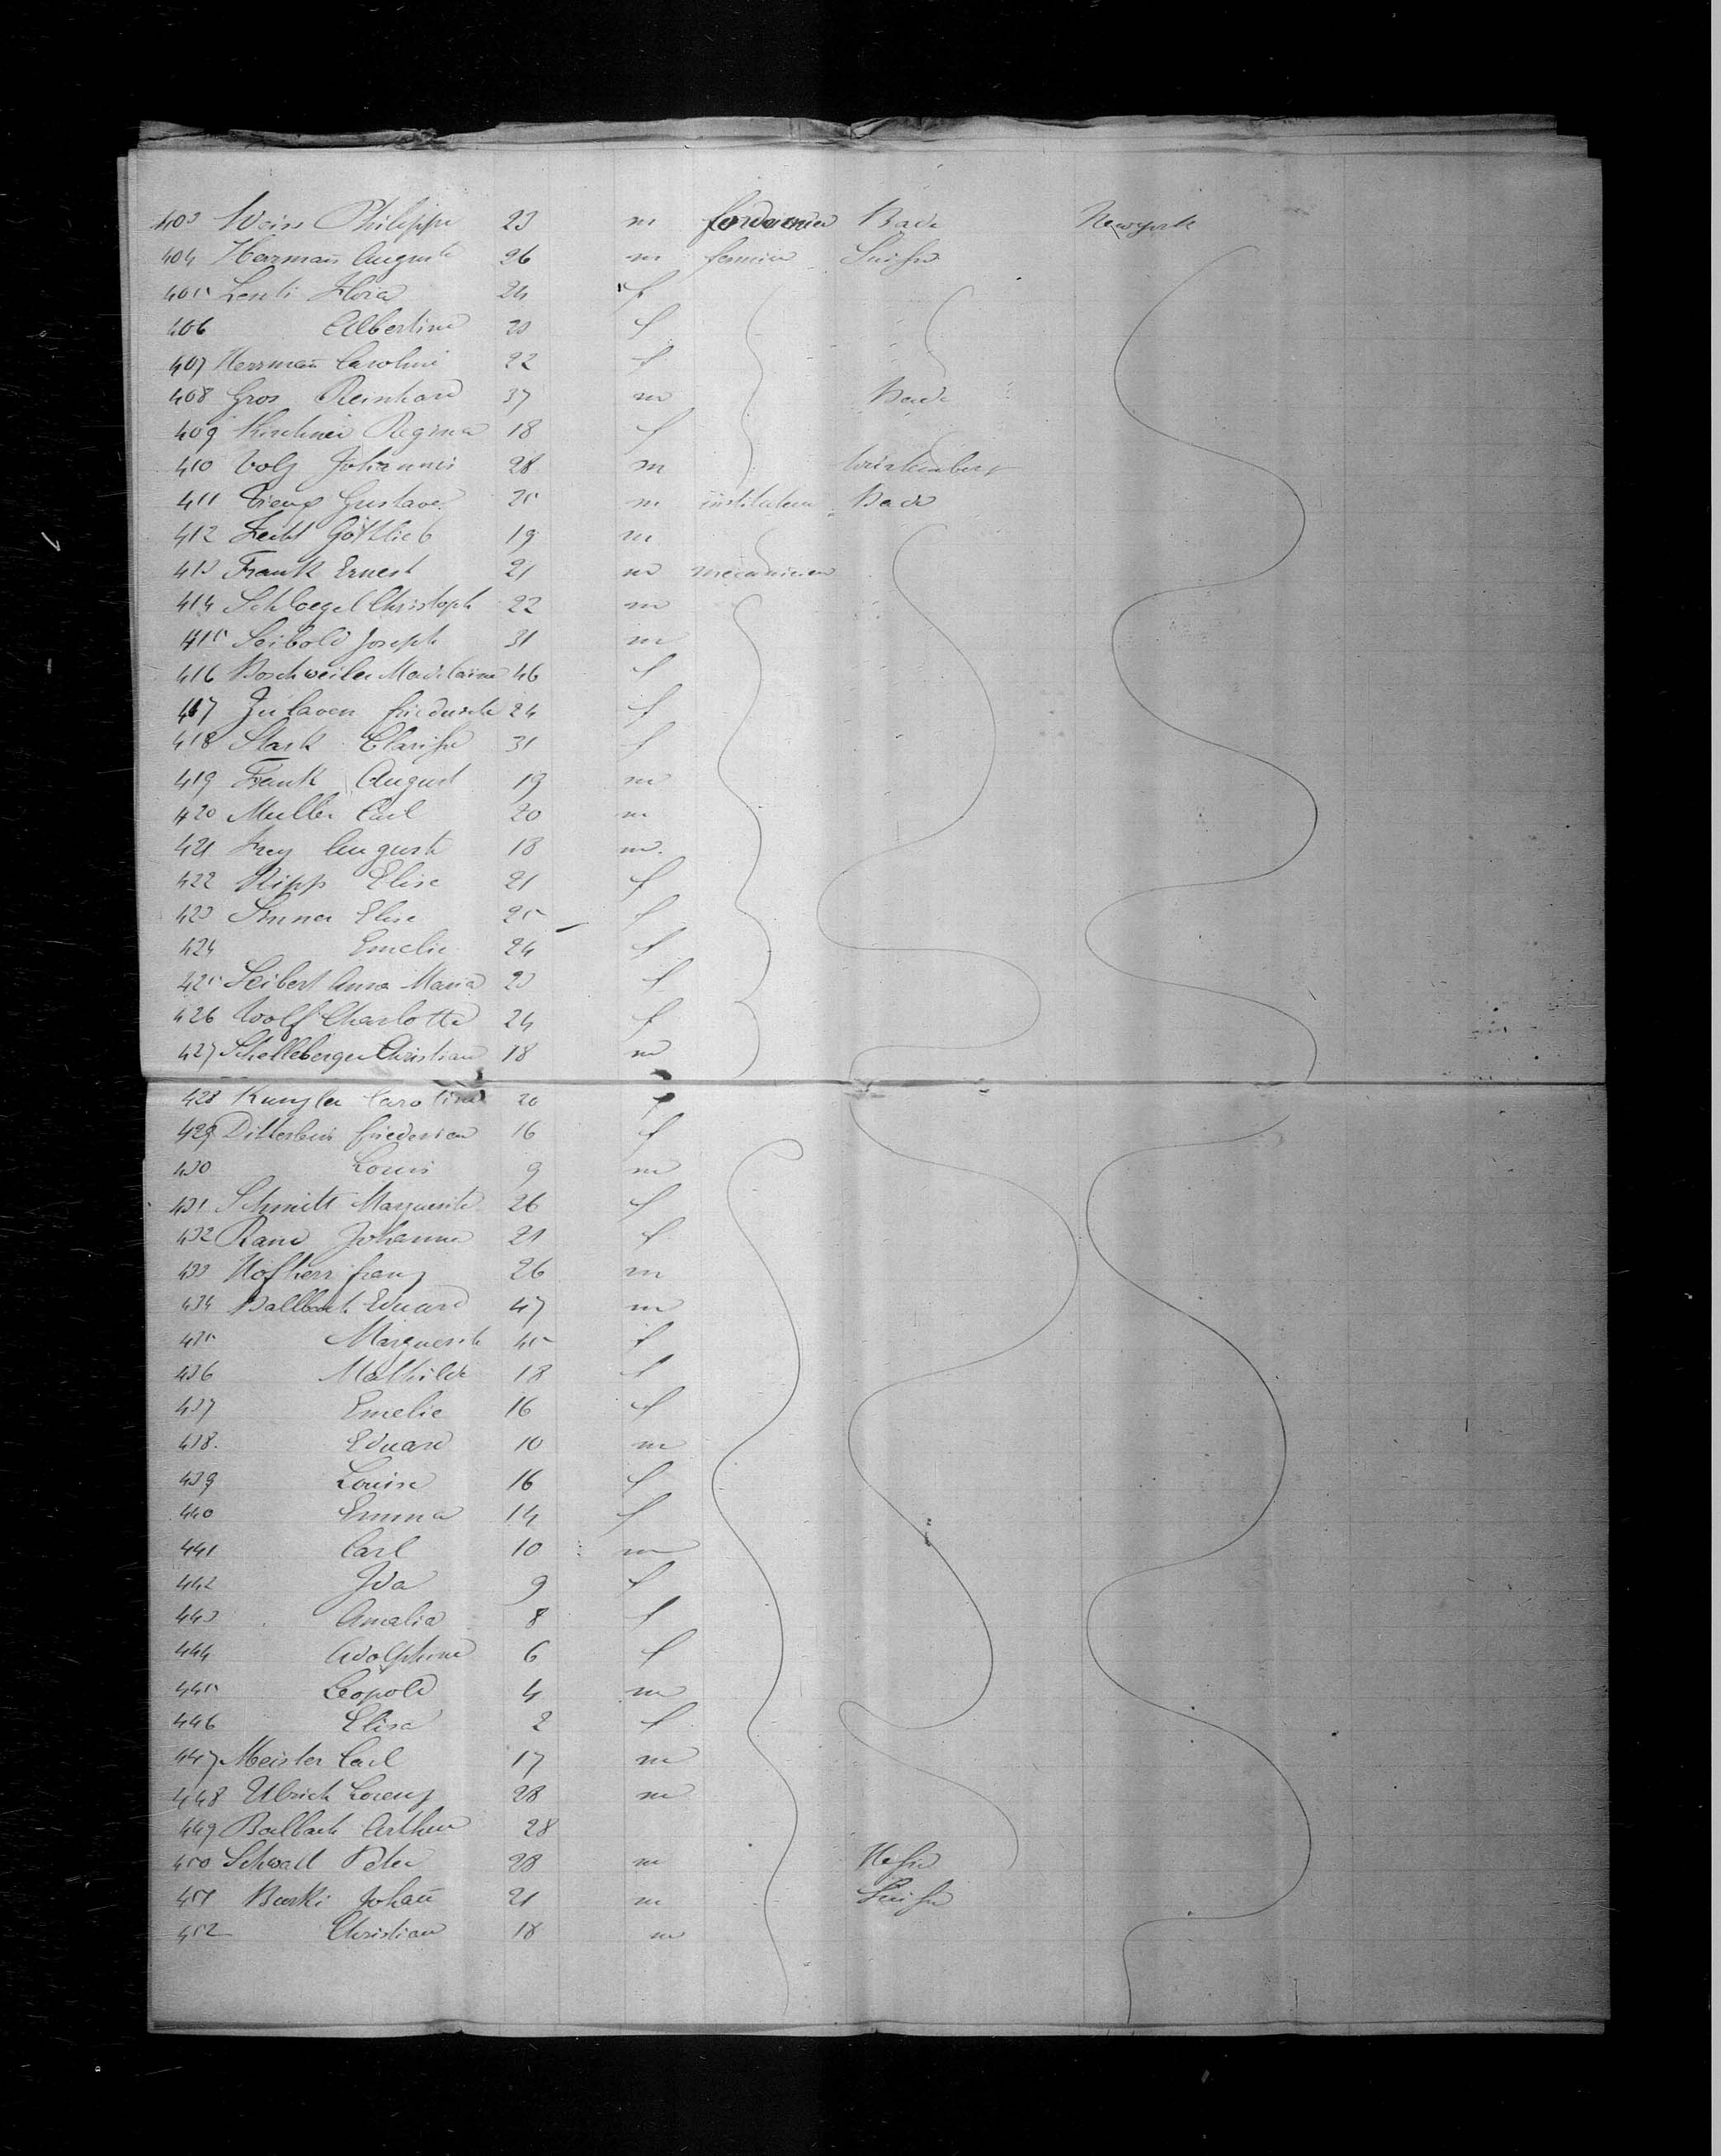 403 Weiss Philippe 23 m Bade Newyork
404 Herrman̄ August 26 m fermier Suisse
405 24 f
406 Albertine 23 f
407 Herrman̄ Caroline 22 f
408 Gros Reinhard 37 m Bade
409 Kirchner Regina 18 f
410 Volz Johannes 28 m Wurtemberg
411 Gustave 25 m instituteur Bade
412 Gottlieb 19 m
413 Frank Ernest 21 m mecanicien
414 Schloegel Christoph 22 m
415 Seibold Joseph 31 m
416 Boschweiler Madelaine 46 f
417 24 f
418 Stark Clarisse 31 f
419 Frank August 19 m
420 Muller Carl 20 m
421 Frey August 18 m.
422 Ripp Elise 21 f
423 Sinner Elise 25 f
424 Emelie 24 f
425 Seibert Anna Maria 23 f
426 Wolf Charlotte 24 f
427 Schelleberger Christian 18 m
428 Kunzler Carolina 20 f
429 16 f
430 Louis 9 m
431 Schmitt Marguerite 26 f
432 Johanna 21 f
433 Hofherr franz 26 m
434 Ballbach Eduard 47 m
435 Marguerite 45 f
436 Mathilde 18 f
437 Emelie 16 f
438. Eduard 10 m
439 Louise 16 f
440 Emma 14 f
441 Carl 10 m
442 Ida 9 f
443 Amalia 8 f
444 Adolphine 6 f
445 Leopold 4 m
446 Elisa 2 f
447 Meister Carl 17 m
448 Ulrich Lorenz 28 m
449 Balbach Arthur 28
450 Peter 28 m Hesse
451 Burki Johan̄ 21 m Suisse
452 Christian 18 m